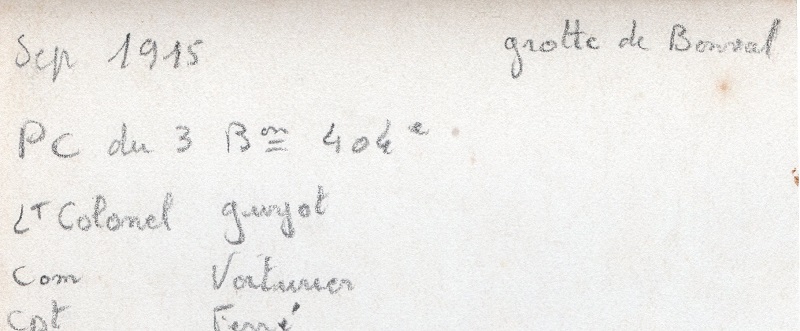 Sep 1915 grotte de Bonval
PC du 3 Bon 404e
LT Colonel guyot
Com Voiturier
Cpt Ferré